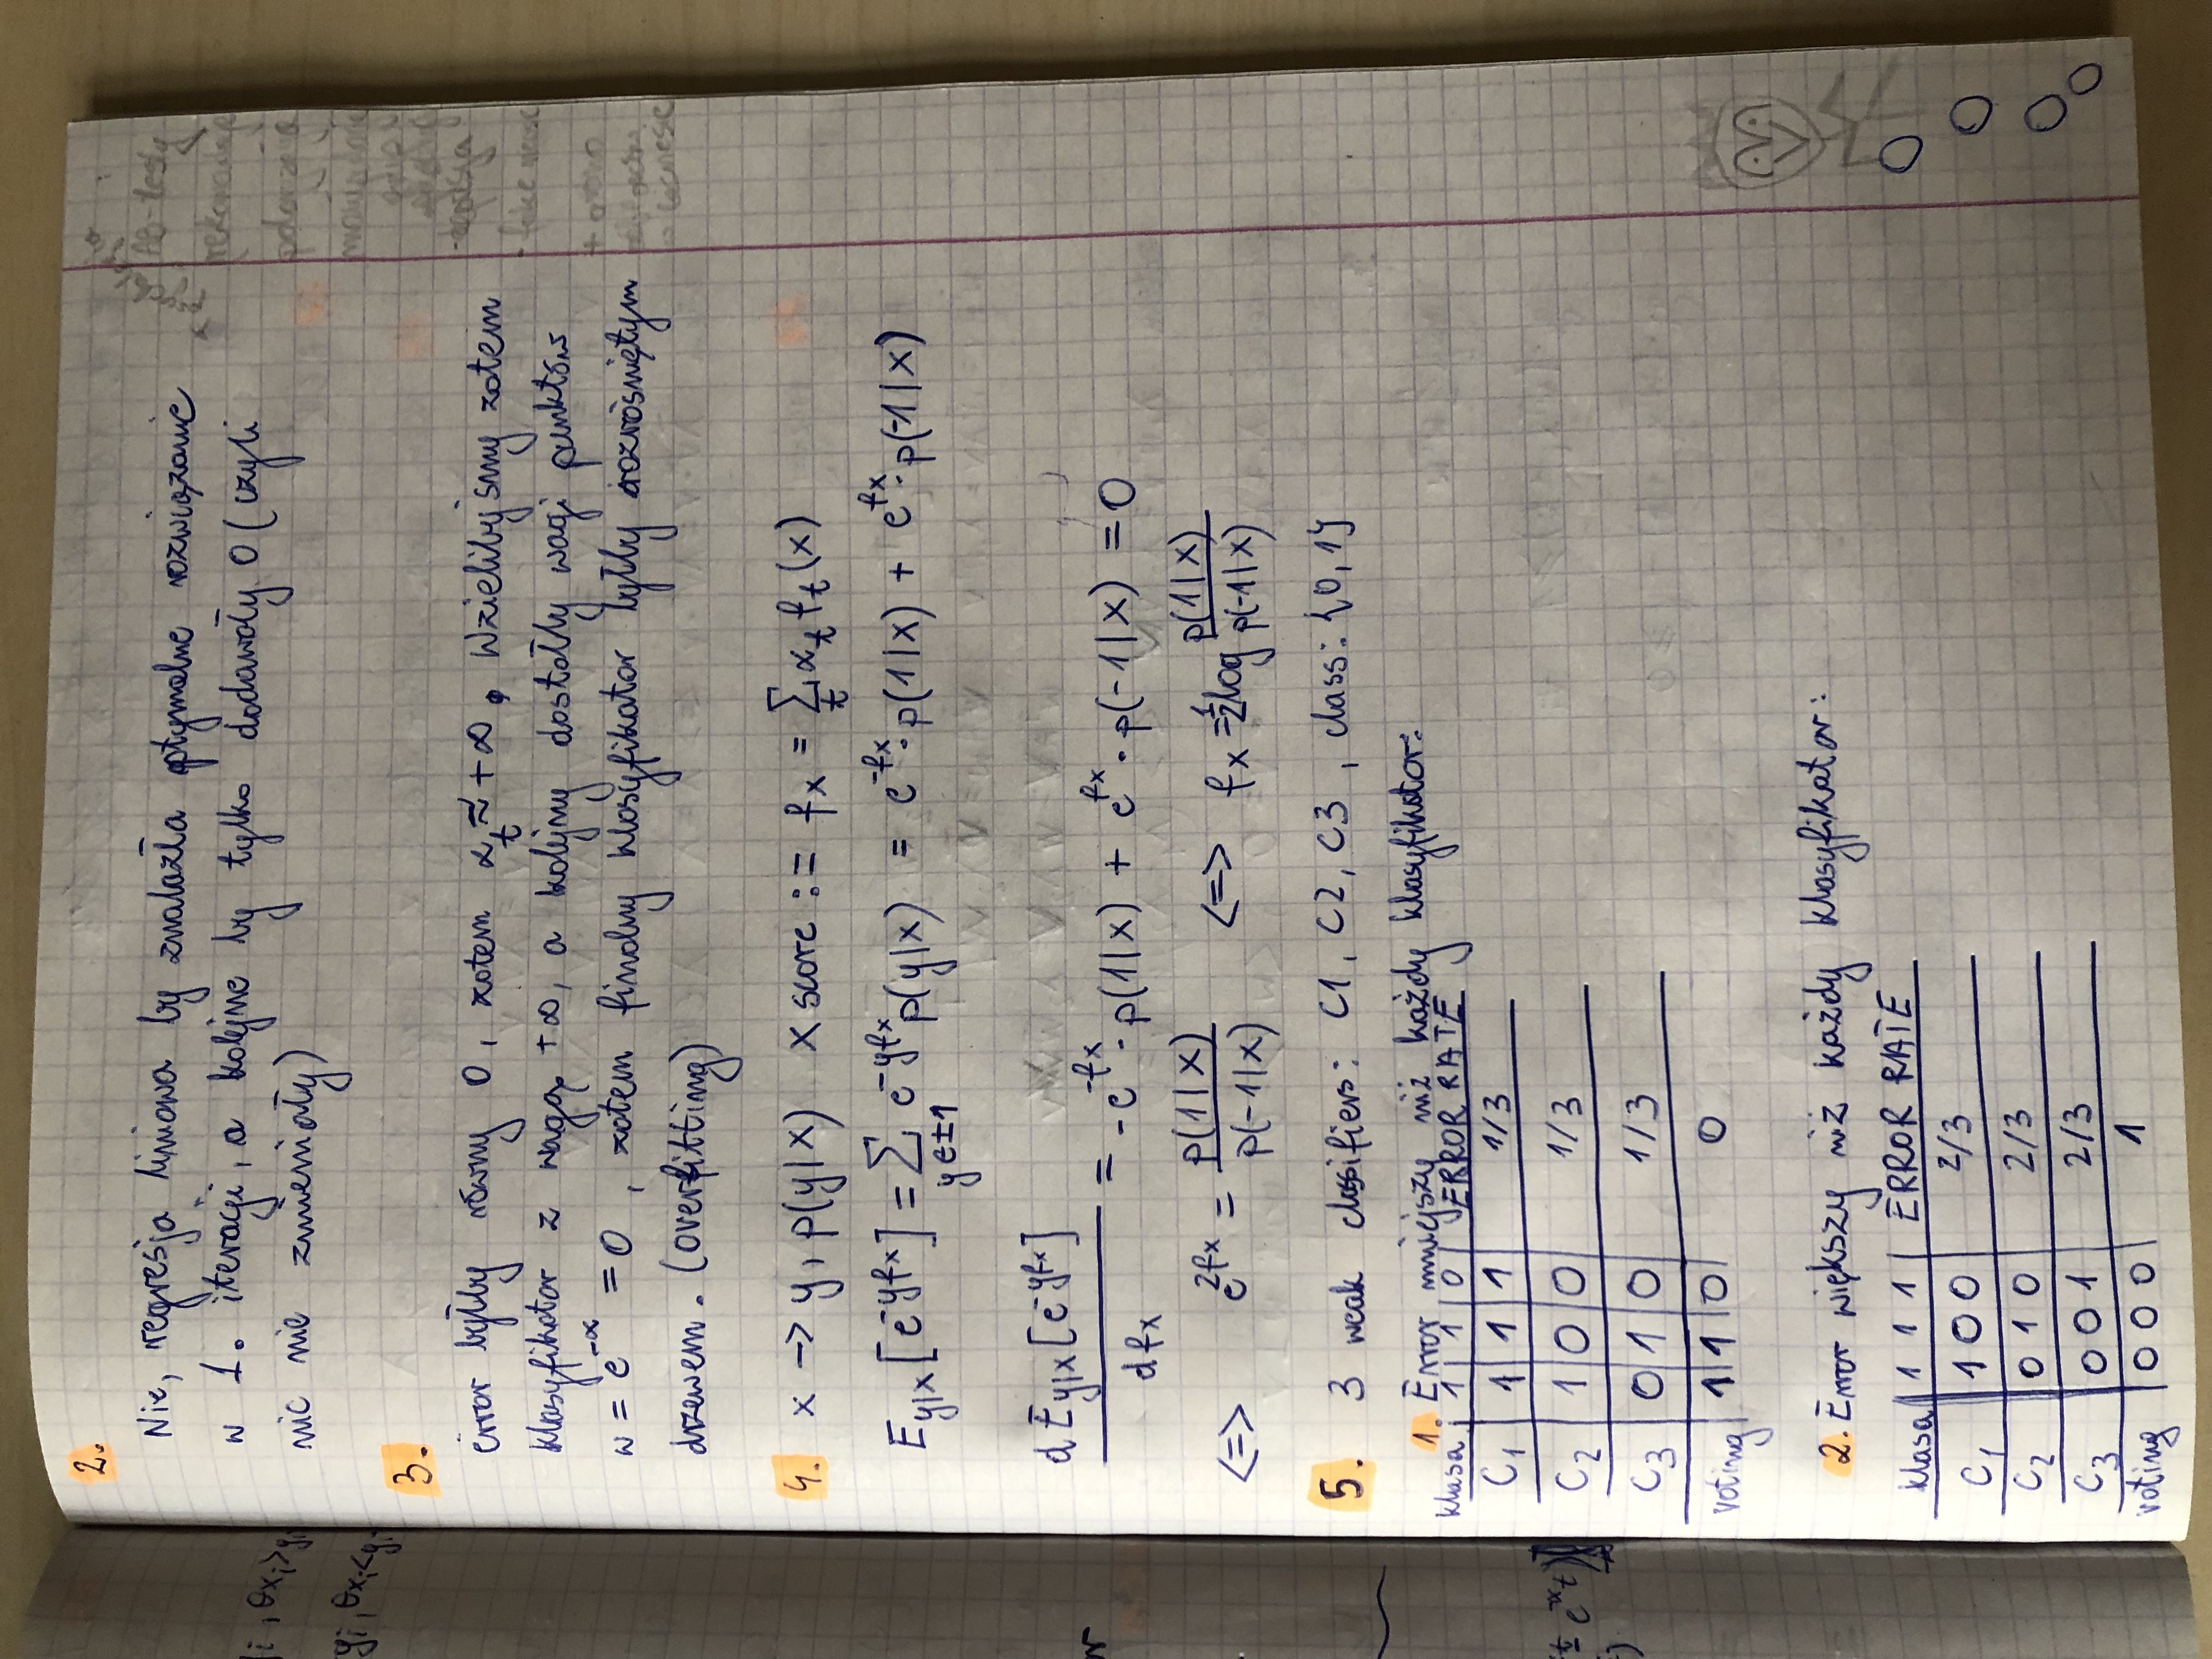 2.
Nie, regresja liniowa by znalazła optymalne rozwiązanie
w 1. iteracji, a kolejne by tylko dodawały 0 (czyli
nic nie zmieniały)
3.
error byłby równy 0, zatem α_t ≈ +∞. Wzielibyśmy zatem
klasyfikator z wagą +∞, a kolejny dostałby wagi punktów
w = e^-α = 0, zatem finalny klasyfikator byłby rozrośniętym
drzewem. (overfitting)
4. x -> y, p(y|x) x score := f_x = ∑_t α_t f_t(x)
E_y|x [e^-yf_x] = ∑_{y∈±1} e^-yf_x p(y|x) = e^-f_x · p(1|x) + e^f_x · p(-1|x)
d E_y|x [e^-yf_x] / d f_x = -e^-f_x · p(1|x) + e^f_x · p(-1|x) = 0
<=> e^2f_x = p(1|x) / p(-1|x) <=> f_x = 1/2 log p(1|x) / p(-1|x)
5. 3 weak classifiers: C1, C2, C3, class: {0, 1}
1. Error mniejszy niż każdy klasyfikator:
klasa 1 1 0 ERROR RATE
C1 1 1 1 1/3
C2 1 0 0 1/3
C3 0 1 0 1/3
voting 1 1 0 0
2. Error większy niż każdy klasyfikator:
klasa 1 1 1 ERROR RATE
C1 1 0 0 2/3
C2 0 1 0 2/3
C3 0 0 1 2/3
voting 0 0 0 1